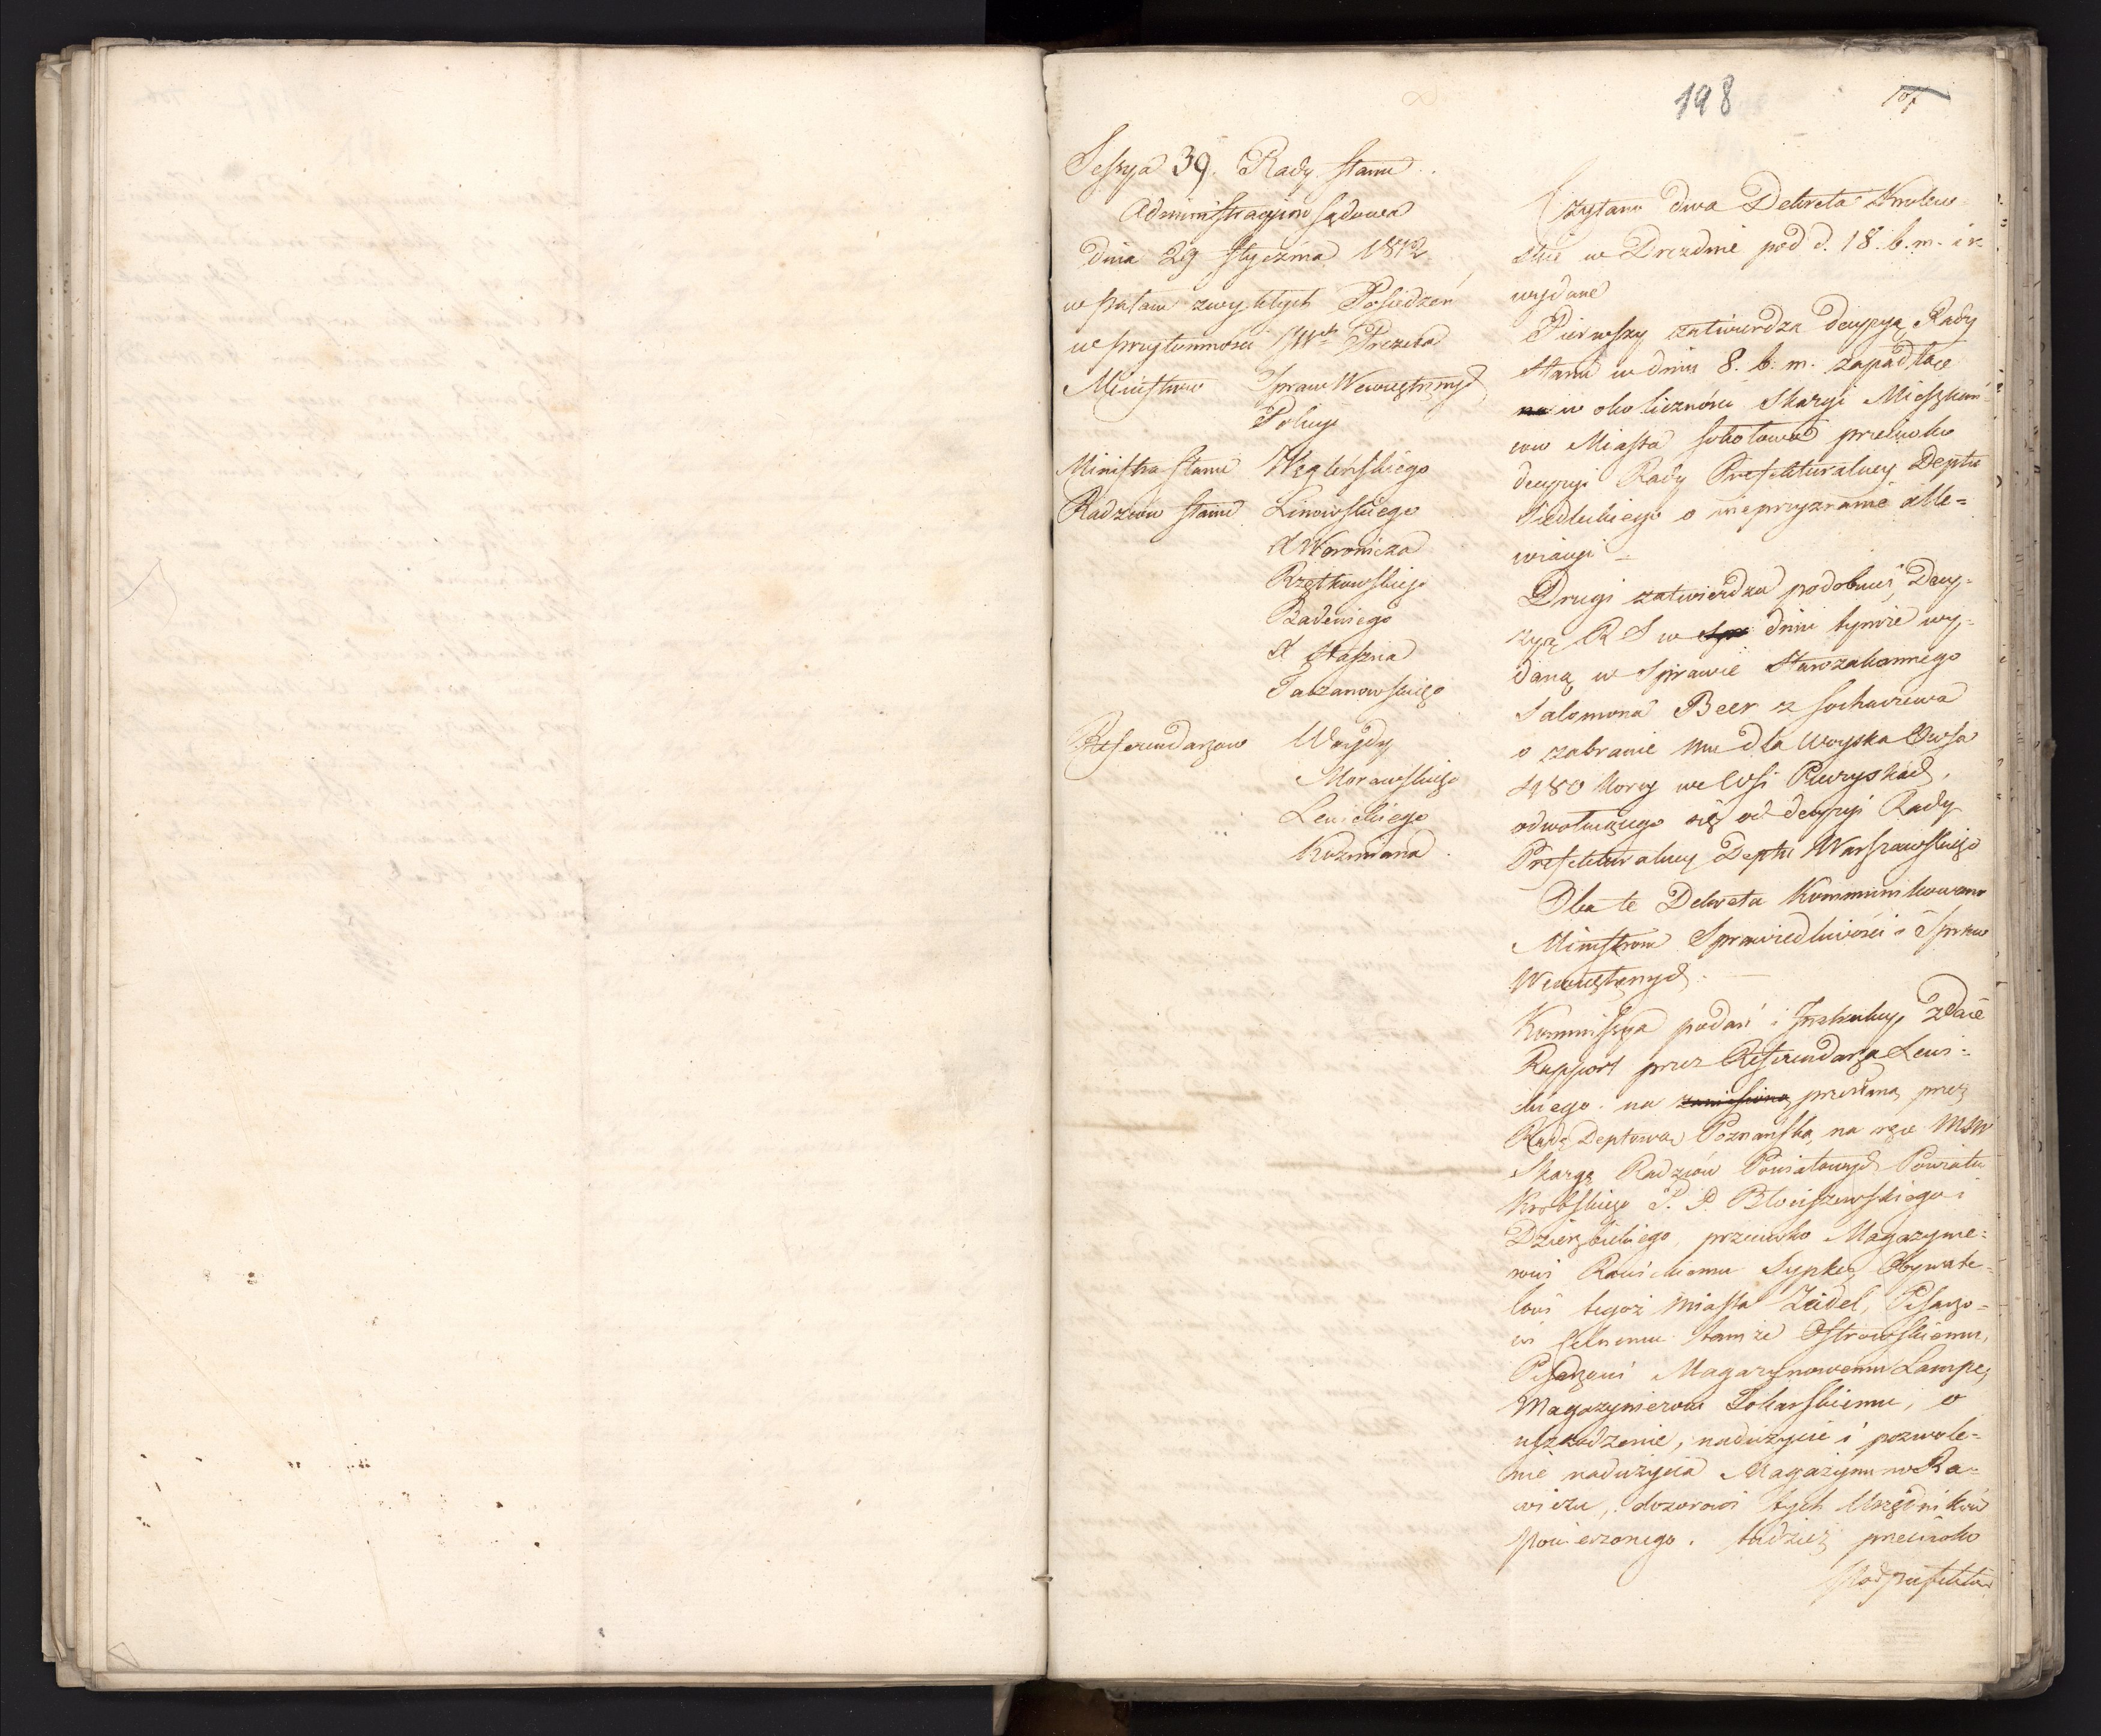 198
107
Sessya 39. Rady Stanu
Administracyino sądowa
dnia 29 Stycznia 1812
w Pałacu zwykłych Posiedzeń
w przytomności JW. Prezesa
Ministrow Spraw Wewnętrznych
Policyi
Ministra Stanu Węgleńskiego
Radzcow Stanu Linowskiego
X Woronicza
Rzętkowskiego
Badeniego
X Staszica
Taczanowskiego
Referendarzow Woydy
Morawskiego
Lewickiego
Kozmiana
Czytano dwa Dekreta Krolew-
skie w Dreznie pod d. 18. b. m. i r.
wydane
Pierwszy zatwierdza decyzyą Rady
Stanu w dniu 8. b. m. zapadłą
w okoliczności Skargi Mieszkań-
cow Miasta Sokołowa przeciwko
decyzyi Rady Prefekturalney Deptu
Siedleckiego o nieprzyznanie alle-
wiacyi =
Drugi zatwierdza podobnież Decy-
zyą R S w dniu tymże wy-
daną w Sprawie Starozakonnego
Salomona Beer z Sochaczewa
o zabranie mu dla Woyska Owsa
480 Korcy we Wsi
odwołuiącego się od decyzyi Rady
Prefekturalney Deptu Warszawskiego
Oba te Dekreta Kommunikowano
Ministrom Sprawiedliwości i Spraw
Wewnętrznych. —
Kommissya podań i Instrukcyi zdaie
Rapport przez Referendarza Lewi-
ckiego. na przesłaną przez
Radę Deptową Poznańską na ręce MSW
Skargę Radzców Powiatowych Powiatu
Krobskiego P. P. Błociszewskiego i
Dzierzbickiego, przeciwko Magazynie-
rowi Rawickiemu Sypke, Obywate-
lowi tegoż miasta Zeidel, Pisarzo-
wi Celnemu tamże Ostrowskiemu,
Pisarzowi Magazynowemu Lampe,
Magazynierowi Tokarskiemu, o
uszkodzenie, nadużycie i pozwole-
nie nadużycia Magazynu w Ra-
wiczu, dozorowi tych Urzędników
powierzonego. tudzież przeciwko
Podprefektowi